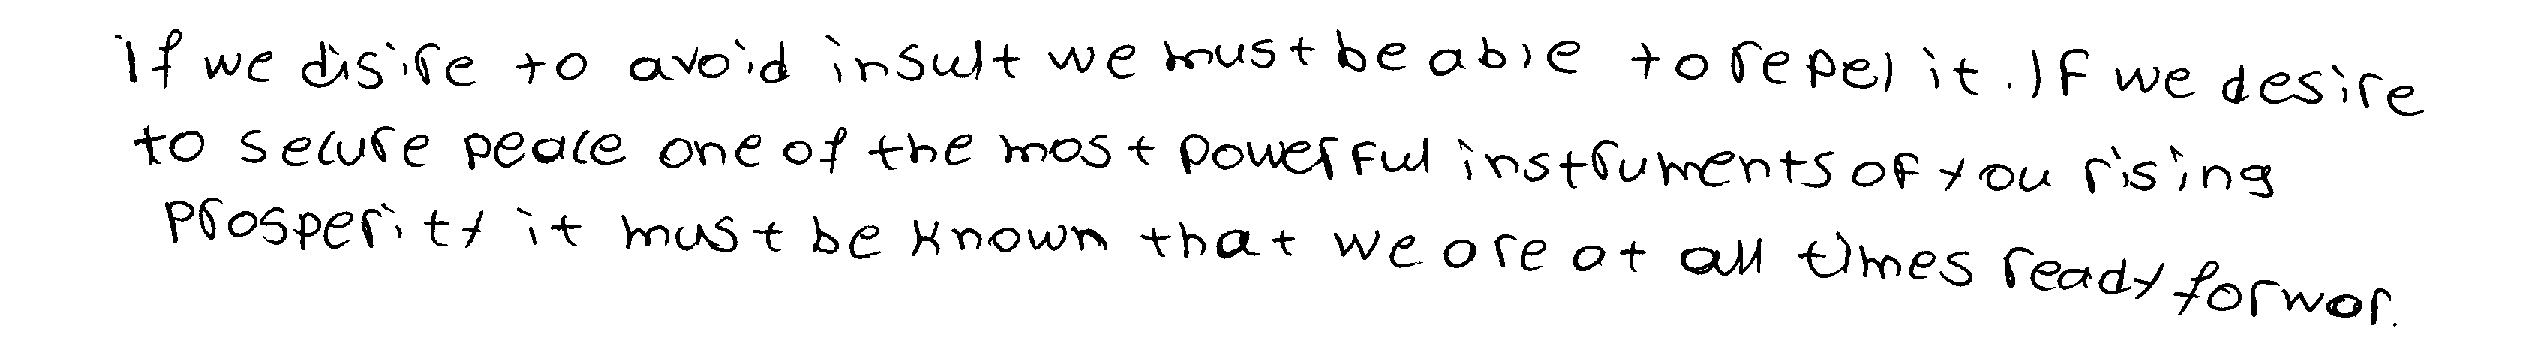 If we disire to avoid insult we must be able to repel it. If we desire
to secure peace one of the most powerful instruments of you rising
prosperity it must be known that we are at all times ready for war.